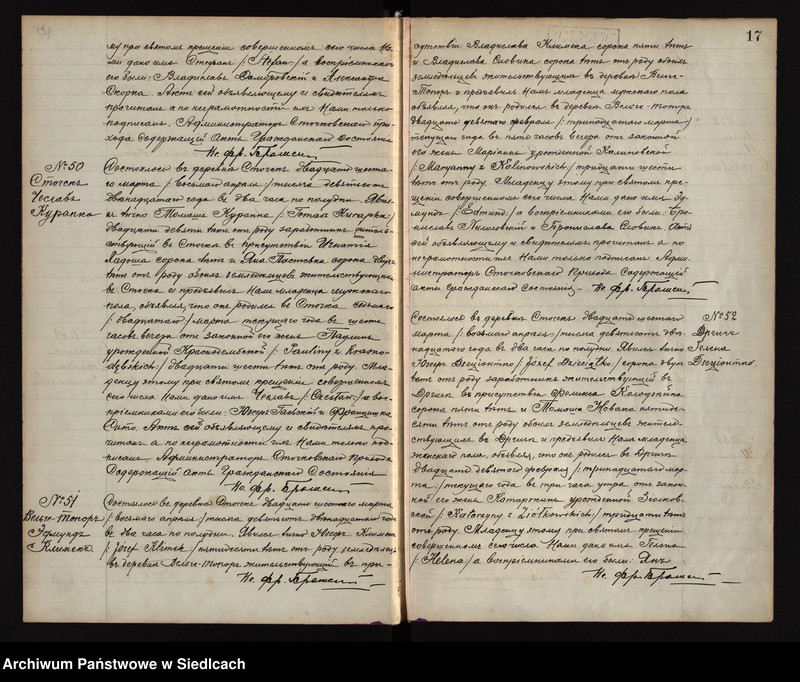 17
му при святомъ крещеніи совершенномъ сего числа На-
ми дано имя Стефанъ /: Stefan :/ а воспріемниками
его были: Владиславъ Домбровскій и Александра
Окорка. Актъ сей объявляющему и свидѣтелямъ
прочитанъ а по неграмотности ихъ Нами только
подписанъ. Администраторъ Сточковскаго При-
хода Содержащій Акты Гражданскаго Состоянія
Кс. Фр.
№ 50
Сточекъ
Чеславъ
Курапка
Состоялось въ деревнѣ Сточекъ двадцать шеста-
го марта /: восьмаго апрѣля :/ тысяча девятьсотъ
двѣнадцатаго года въ два часа по полудни. Явил-
ся лично Томашъ Курапка /: Tomasz Kurapka :/
двадцати девяти лѣтъ отъ роду заработникъ житель-
ствующій въ Сточкѣ въ присутствіи Игнатія
сорока лѣтъ и Яна сорока двухъ
лѣтъ отъ роду обоихъ земледѣльцевъ жительствующихъ
въ Сточкѣ и предъявилъ Намъ младенца мужескаго
пола, объявляя, что онъ родился въ Сточкѣ седьмаго
/: двадцатаго :/ марта текущаго года въ шесть
часовъ вечера отъ законной его жены Павлины
урожденной /: Pauliny z
:/ двадцати шести лѣтъ отъ роду. Мла-
денцу этому при святомъ крещеніи совершенномъ
сего числа Нами дано имя Чеславъ /: Czesław :/ а вос-
пріемниками его были: Юзефъ и Францишка
Сито. Актъ сей объявляющему и свидѣтелямъ про-
читанъ а по неграмотности ихъ Нами только под-
писанъ Администраторъ Сточковскаго Прихода
Содержащій Акты Гражданскаго Состоянія
Кс. Фр.
№ 51
Вельге-Топоръ
Эдмундъ
Климекъ
Состоялось въ деревнѣ Сточекъ двадцать шестаго марта
/: восьмаго апрѣля :/ тысяча девятьсотъ двѣнадцатаго года
въ два часа по полудни. Явился лично Юзефъ Климекъ
/: Józef Klimek :/ пятидесяти лѣтъ отъ роду земледѣлецъ
въ деревнѣ Вельге-Топоръ жительствующій въ при-
Кс. Фр.
сутствіи Владислава Климека сорока пяти лѣтъ
и Владислава Словика сорока лѣтъ отъ роду обоихъ
земледѣльцевъ жительствующихъ въ деревнѣ Вельге-
Топоръ и предъявилъ Намъ младенца мужескаго пола
объявляя, что онъ родился въ деревнѣ Вельге-Топоръ
двадцать девятаго февраля /: тринадцатаго марта :/
текущаго года въ пять часовъ вечера отъ законной
его жены Маріанны урожденной Калиновской
/: Maryanny z Kalinowskich :/ тридцати шести
лѣтъ отъ роду. Младенцу этому при святомъ кре-
щеніи совершенномъ сего числа Нами дано имя Эд-
мундъ /: Edmund :/ а воспріемниками его были: Бро-
ниславъ и Бронислава Словикъ. Актъ
сей объявляющему и свидѣтелямъ прочитанъ а по
неграмотности ихъ Нами только подписанъ. Адми-
нистраторъ Сточковскаго Прихода Содержащій
акты гражданскаго Состоянія — Кс. Фр.
№ 52
Дргичъ
Гелена
Дзецёнтко.
Состоялось въ деревнѣ Сточекъ двадцать шестаго
марта /: восьмаго апрѣля :/ тысяча девятьсотъ двѣ-
надцатаго года въ два часа по полудни. Явился лично
Юзефъ Дзецёнтко /: Józef Dzieciątko :/ сорока двухъ
лѣтъ отъ роду заработникъ жительствующій въ
Дргичѣ въ присутствіи Феликса
сорока пяти лѣтъ и Томаша пятиде-
сяти лѣтъ отъ роду обоихъ земледѣльцевъ житель-
ствующихъ въ Дргичѣ и предъявилъ Намъ младенца
женскаго пола, объявляя, что онъ родился въ Дргичѣ
двадцать девятаго февраля /: тринадцатаго мар-
та :/ текущаго года въ три часа утра отъ закон-
ной его жены Катаржины урожденной Зіолков-
ской /: Katarzyny z Ziółkowskich :/ тридцати лѣтъ
отъ роду. Младенцу этому при святомъ крещеніи
совершенномъ сего числа Нами дано имя Гелена
/: Helena :/ а воспріемниками его были: Янъ
Кс. Фр.
Archiwum Państwowe w Siedlcach